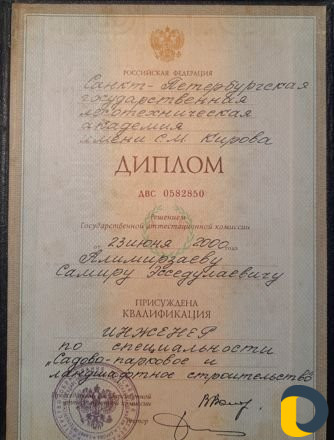 РОССИЙСКАЯ ФЕДЕРАЦИЯ
Санкт-Петербургская
государственная
лесотехническая
академия
имени С.М. Кирова
ДИПЛОМ
ДВС 0582850
Решением
Государственной аттестационной комиссии
от 23 июня 2000 года
Алимирзаеву
Самиру
ПРИСУЖДЕНА
КВАЛИФИКАЦИЯ
ИНЖЕНЕР
по специальности
"Садово-парковое и
ландшафтное строительство
Председатель Государственной
аттестационной комиссии
Ректор